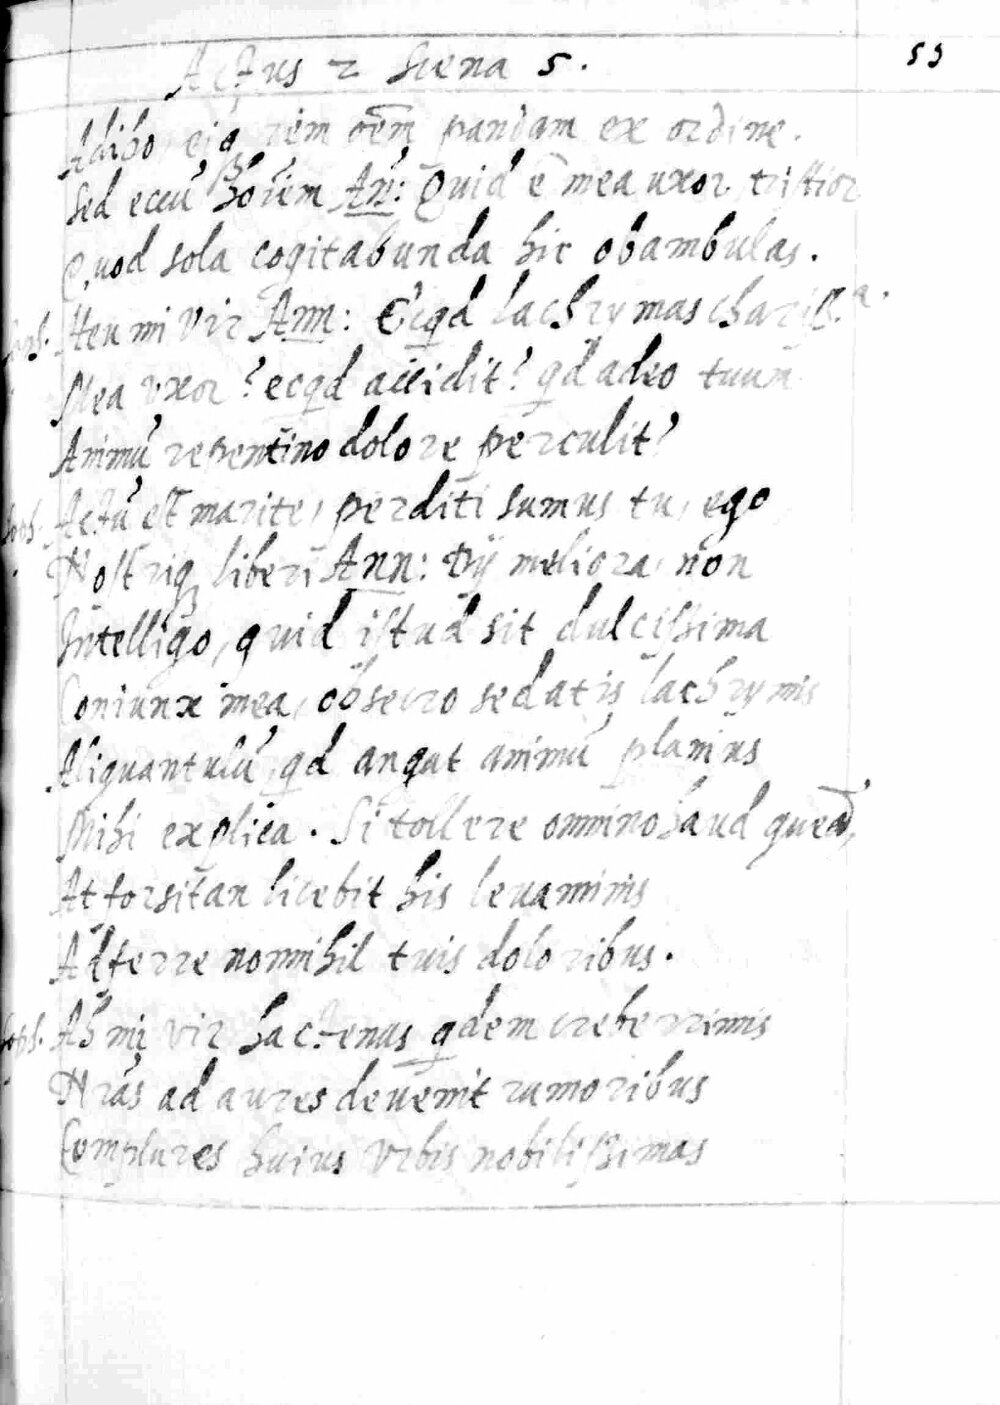 Actus 2 Scena 5. 53
Adibo, eiq rem oēm pandam ex ordine.
Sed eccū Añ: Quid ē mea uxor tristior
Quod sola cogitabunda hic obambulas.
Soph. Heu mi vir Ann: Ecqd lachrymas chariss.a
Mea vxor? ecqd accidit? qd adeo tuum
Animū repentino dolore perculit?
Soph. Actū est marite, perditi sumus tu, ego
Nostriq liberi Ann: Dij meliora, non
Intelligo, quid istud sit dulcissima
Coniunx mea, obsecro sedatis lachrymis
Aliquantulū, qd angat animū planius
Mihi explica. Si tollere omnino haud queā,
At forsitan licebit his levaminis
Adferre nonnihil tuis doloribus.
Soph. Ah mi vir hactenus qdem creberrimis
Nrās ad aures devenit rumoribus
Complures huius Vrbis nobilissimas